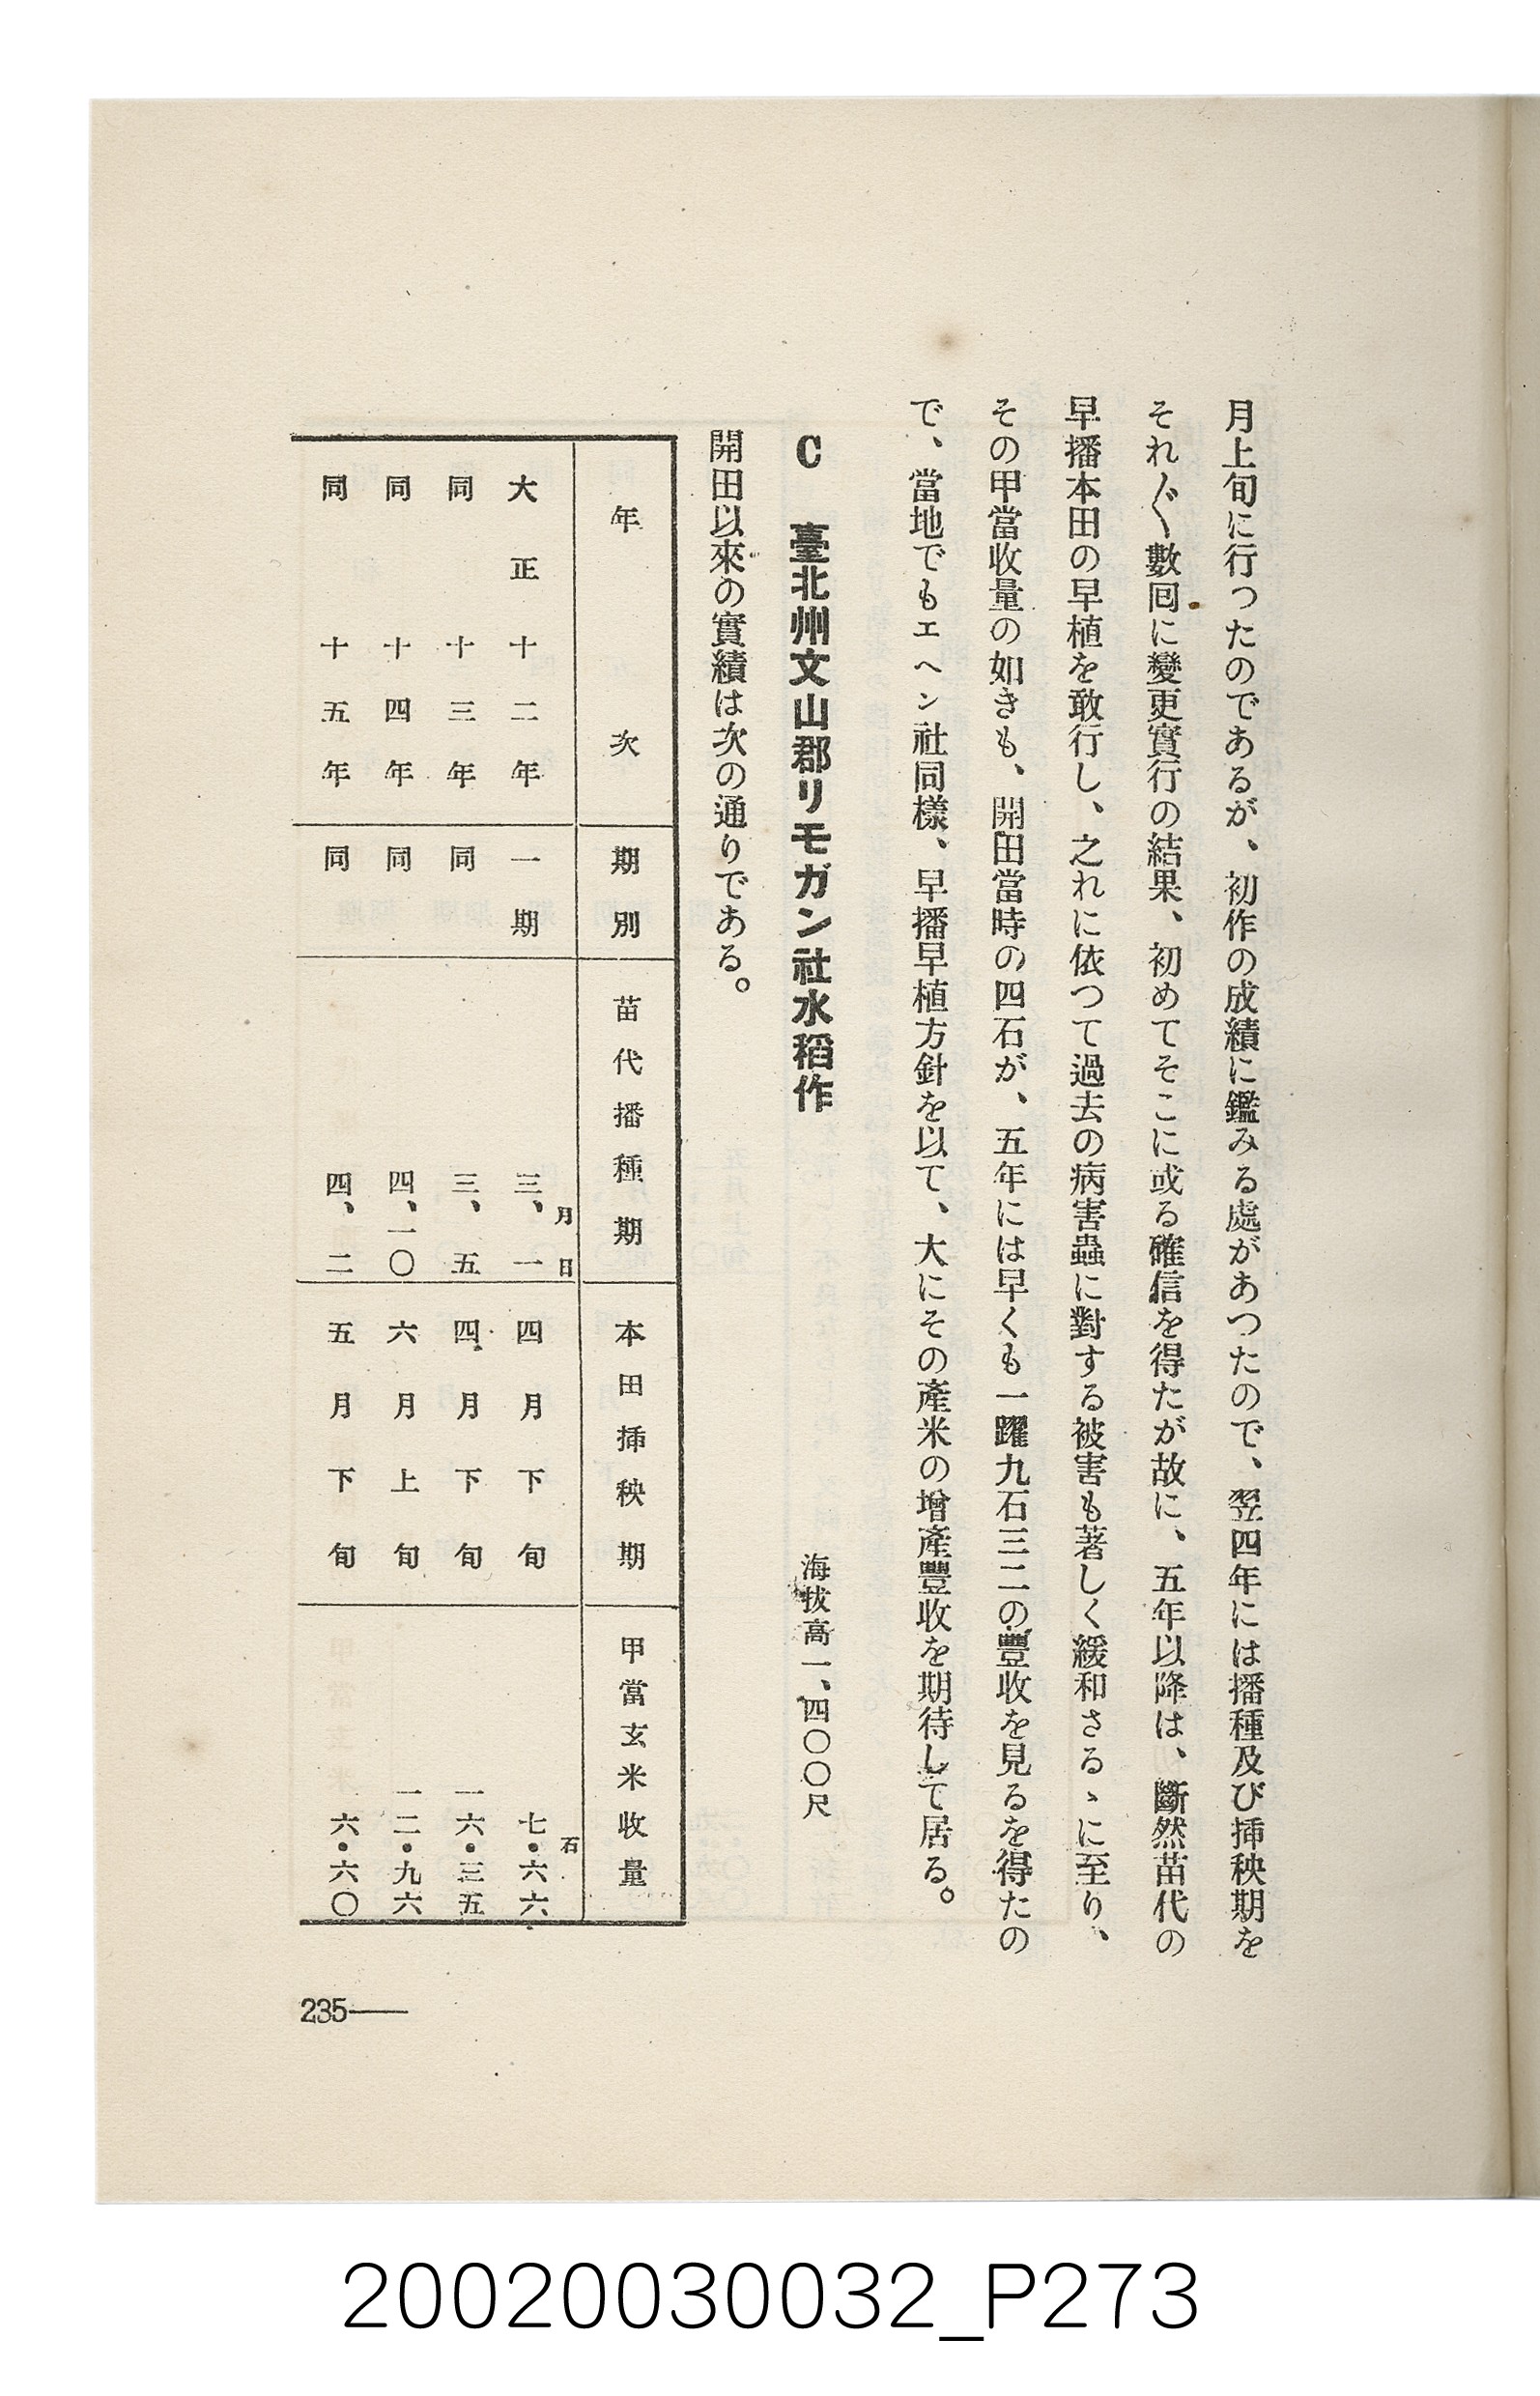 月上旬に行つたのであるが、初作の成績に鑑みる處があつたので、翌四年には播種及び挿秧期を
それ〴〵數囘に變更實行の結果、初めてそこに或る確信を得たが故に、五年以降は、斷然苗代の
早播本田の早植を敢行し、之れに依つて過去の病害蟲に對する被害も著しく緩和さるゝに至り、
その甲當收量の如きも、開田當時の四石が、五年には早くも一躍九石三二の豐收を見るを得たの
で、當地でもエヘン社同樣、早播早植方針を以て、大にその產米の增產豐收を期待して居る。
C 臺北州文山郡リモガン社水稻作 海拔高一、四〇〇尺
開田以來の實績は次の通りである。
年次 期別 苗代播種期 本田挿秧期 甲當玄米收量
月日 石
大正十二年 一期 三、一 四月下旬 七・六六
同十三年 同 三、五 四月下旬 一六・三五
同十四年 同 四、一〇 六月上旬 一二・九六
同十五年 同 四、二 五月下旬 六・六〇
235—
20020030032_P273